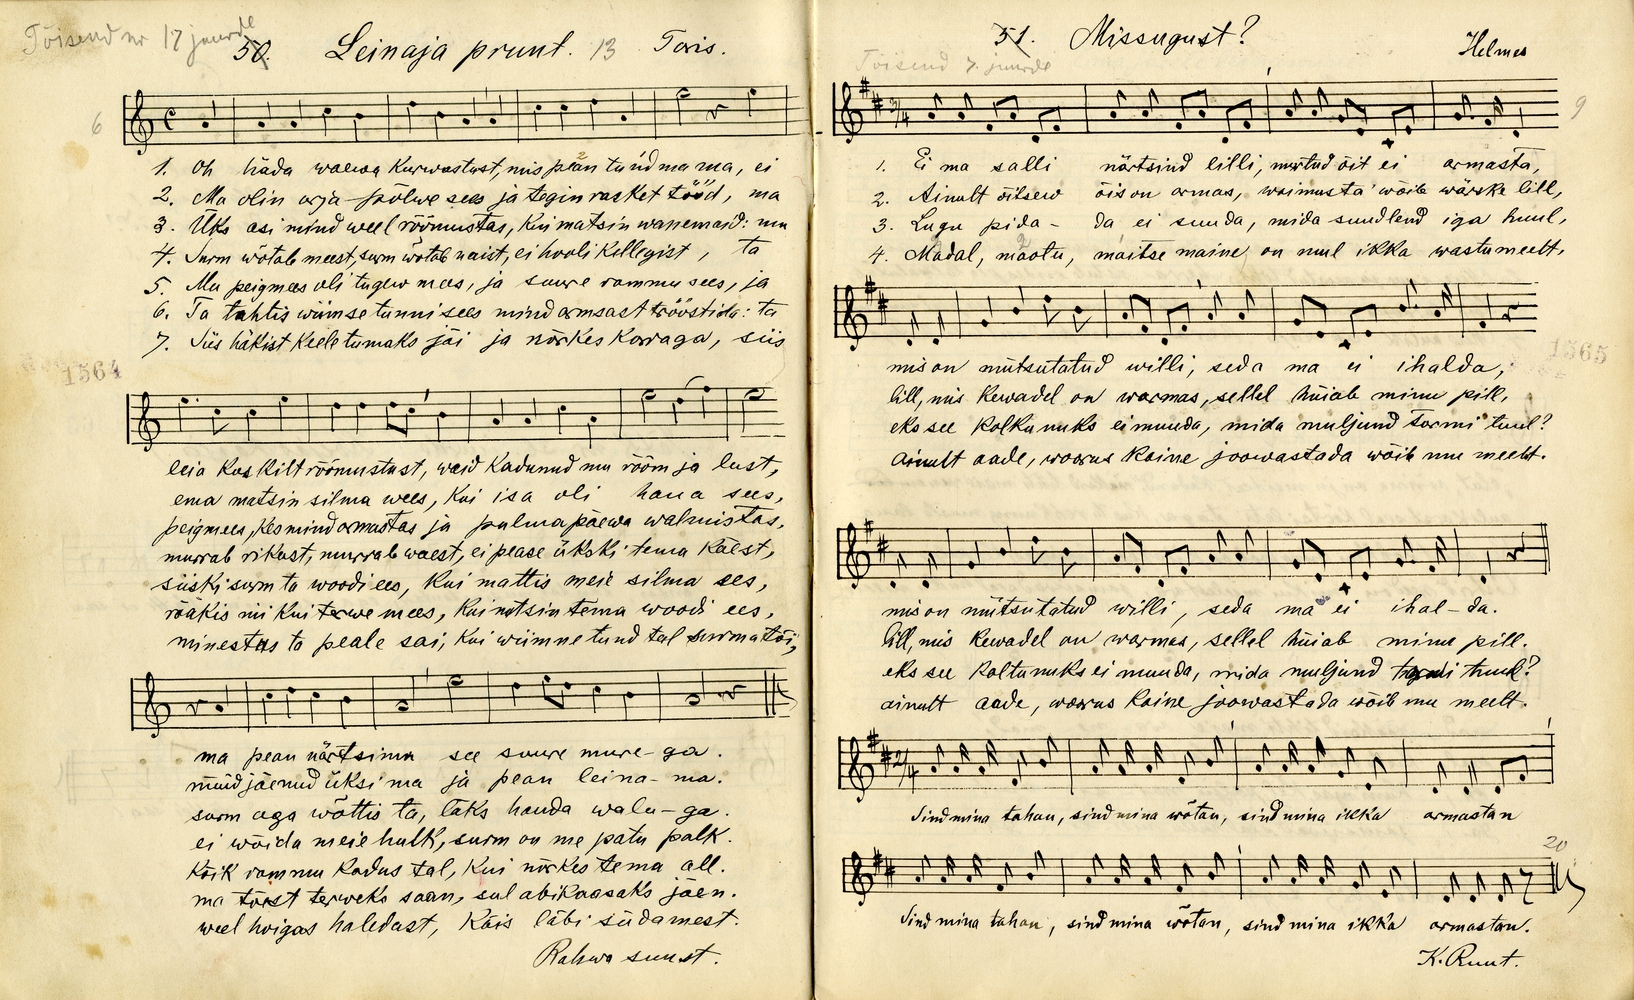 Tõisend nr 17 juurde
50. Leinaja pruut. 13 Toris.
6
1. Oh häda waewa kurwastust, mis pean tundma ma, ei
2. Ma olin orja-põlwe sees ja tegin rasket tööd, ma
3. Üks asi mind weel rõõmustas, kui matsin wanemaid: mu
4. Surm wõtab meest, surm wõtab naist, ei hooli kellegist, ta
5. Mu peigmees oli tugew mees, ja suure rammu sees, ja
6. Ta tahtis wiimse tunni sees mind armsast trööstida: ta
7. Siis häkist keele tumaks jäi ja nõrkes korraga, siis
1564
leia kuskilt rõõmustust, waid kadunud mu rõõm ja lust,
ema matsin silma wees, kui isa oli haua sees,
peigmees, kes mind armastas ja pulmapäewa walmistas,
murrab rikast, murrab waest, ei pease ükski tema käest,
siiski surm ta woodi ees, kui mattis meie silma ees,
rääkis nii kui terwe mees, kui nutsin tema woodi ees,
minestus ta peale sai, kui wiimne tund tal surma tõi,
ma pean närtsima see suure mure-ga.
nüüd jäenud üksi ma ja pean leina-ma.
surm aga wõttis ta, läks hauda walu-ga.
ei wõida meie hulk, surm on me patu palk.
kõik rammu kadus tal, kui nõrkes tema all.
ma tõest terweks saan, sul abikaasaks jäen.
weel hoigas haledast, käis läbi südamest.
Rahwa suust.
51. Missugust? Helmes
Tõisend 7. juurde
9
1. Ei ma salli närtsind lilli, murtud õit ei armasta,
2. Ainult õitsew õis on armas, waimusta wõib wärske lill,
3. Lugu pida- da ei suuda, mida suudlend iga huul,
4. Madal, maotu, maitse maine on mul ikka wastumeelt,
1565
mis on mütsutatud willi, seda ma ei ihalda,
lill, mis kewadel on warmas, sellel hüiab minu pill,
eks see kolkanuks ei muuda, mida muljund tormi tuul?
ainult aade, woorus kaine joowastada wõib mu meelt.
mis on mütsutatud willi, seda ma ei ihal-da.
lill, mis kewadel on warmas, sellel hüiab minu pill.
eks see ei muuda, mida muljund tuul?
ainult aade, woorus kaine joowastada wõib mu meelt.
Sind mina tahan, sind mina wõtan, sind mina ikka armastan
20
Sind mina tahan, sind mina wõtan, sind mina ikka armastan.
K. Ruut.